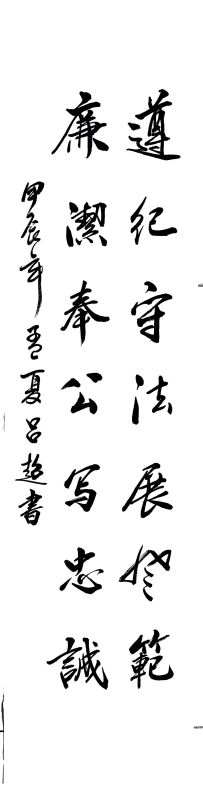 遵纪守法展風範
廉潔奉公写忠誠
甲辰年孟夏吕超書